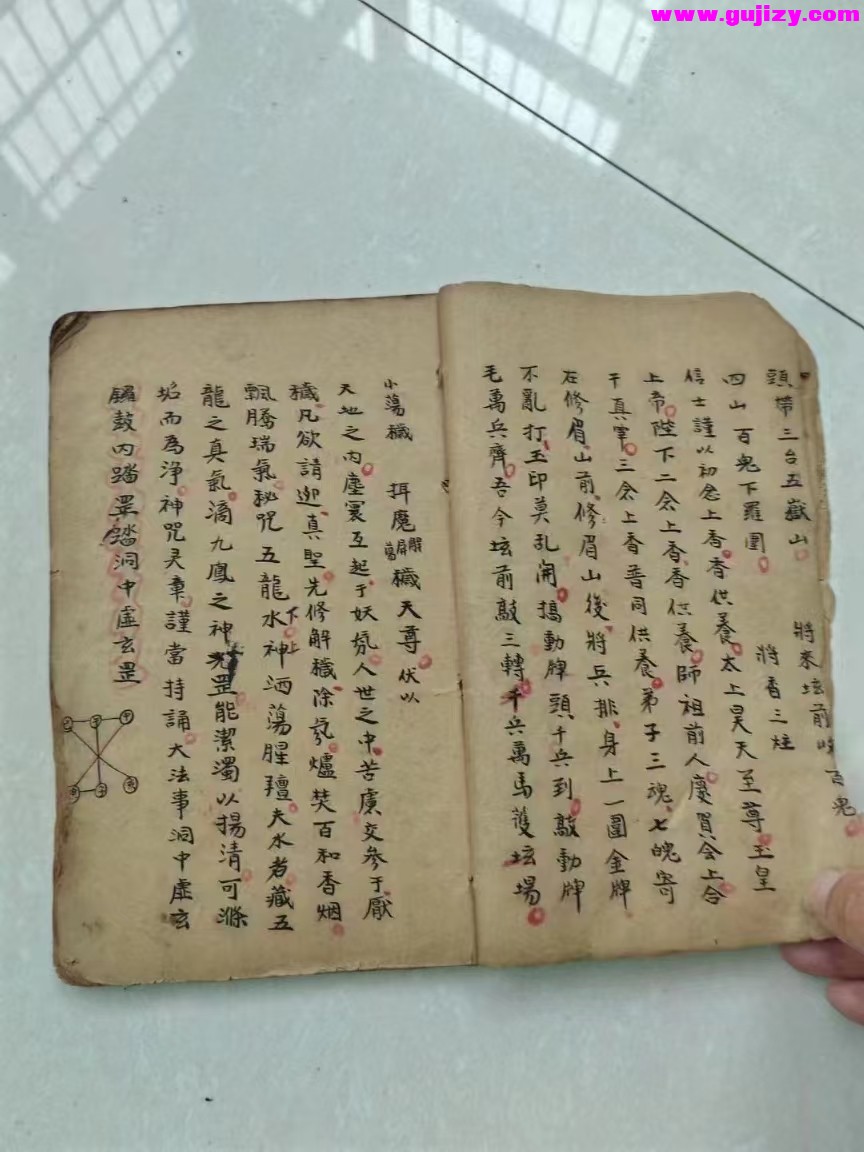 www.gujizy.com
頭帶三台五嶽山 將來坛前收百鬼
四山百鬼下羅圍 將香三炷
信士謹以初念上香香供養太上昊天至尊玉皇
上帝陛下二念上香香供養師祖前人慶賀会上合
干真宰三念上香普同供養弟子三魂七魄寄
在修眉山前修眉山後將兵排身上一圍金牌
不亂打玉印莫乱開搗動牌頭千兵到敲動牌
毛萬兵齊吾今坛前敲三轉千兵萬馬護坛場
小蕩穢 拝魔 解穢天尊 伏以
天地之内塵寰互起于妖氛人世之中苦慮交參于厭
穢凡欲請迎真聖先修解穢除氛爐焚百和香烟
飄騰瑞氣秘咒五龍水神洒蕩腥羶夫水者藏五
下上
龍之真氣滴九鳳之神罡能潔濁以揚清可滌
垢而為净神咒灵章謹當持誦大法事洞中虚玄
鑼鼓内踏罡踏洞中虚玄罡